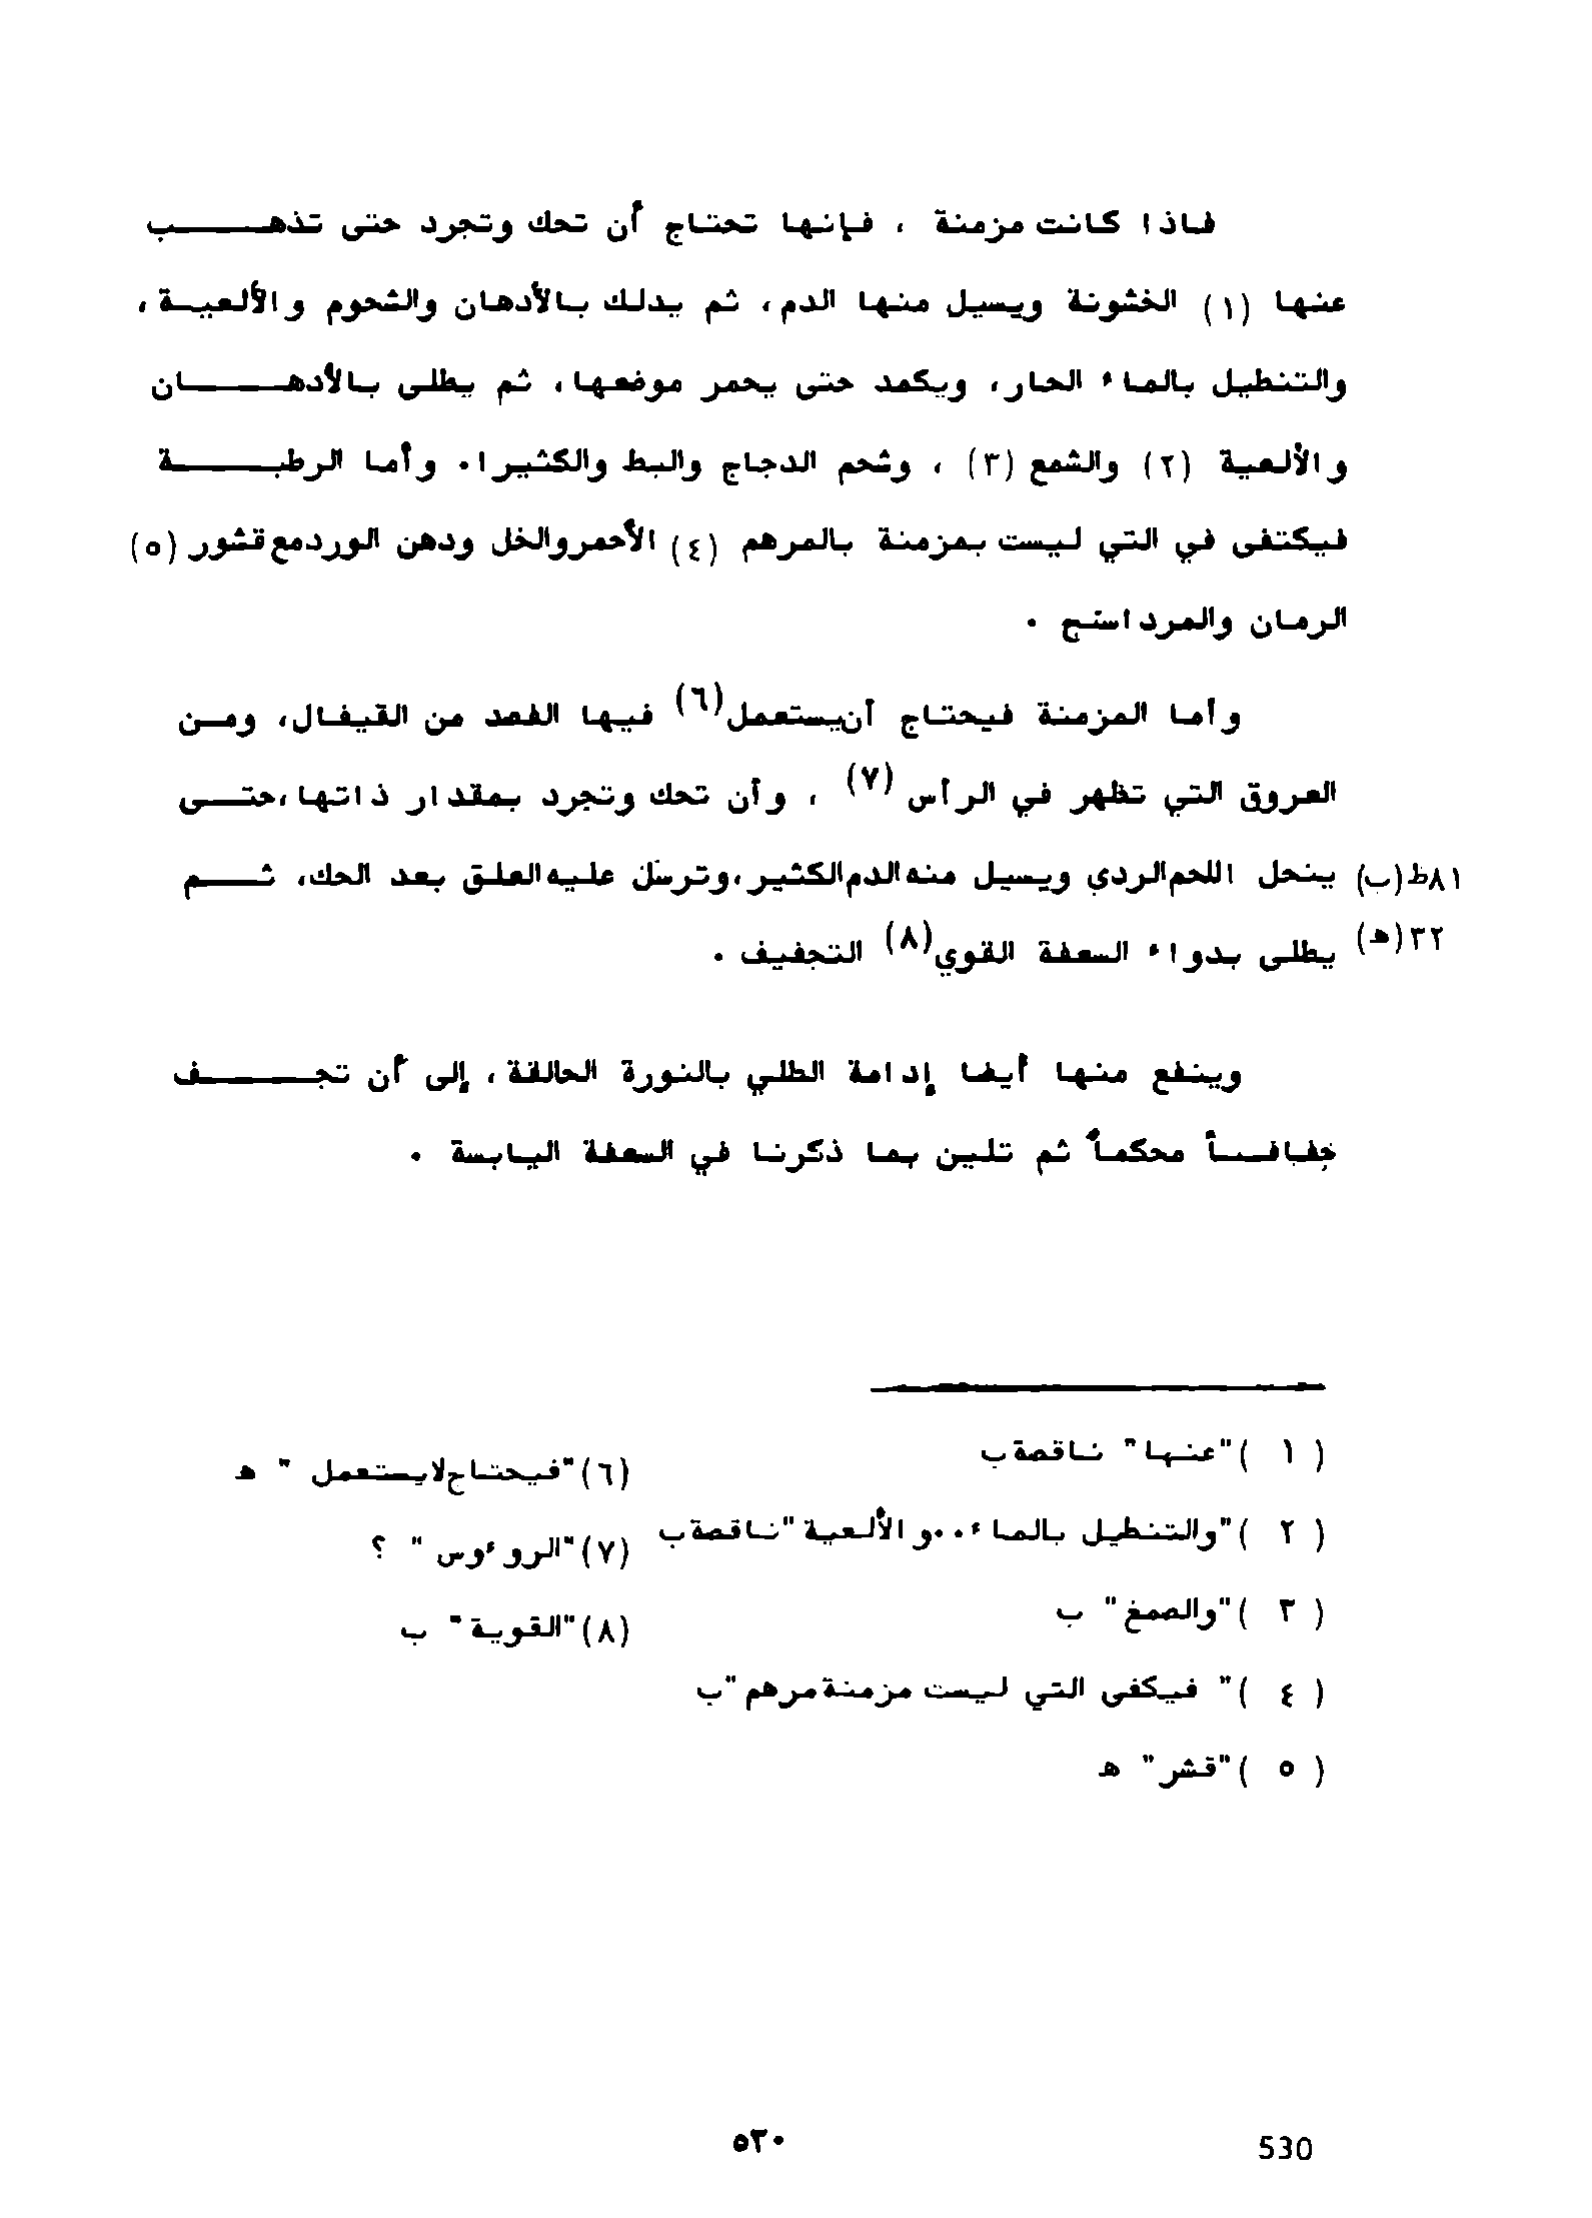 فاذا كانت مزمنة ، فإنها تحتاج أن تحك وتجرد حتى تذهب
عنها (١) الخشونة ويسيل منها الدم، ثم يدلك بالأدهان والشحوم والألعية ،
والتنطيل بالماء الحار، ويكمد حتى يحمر موضعها، ثم يطلى بالأدهان
والألعية (٢) والشمع (٣) ، وشحم الدجاج والبط والكثيرا. وأما الرطبة
فيكتفى في التي ليست بمزمنة بالمرهم (٤) الأحمر والخل ودهن الورد مع قشور (٥)
الرمان والمرداسنج .
وأما المزمنة فيحتاج أن يستعمل(٦) فيها الفصد من القيفال، ومن
العروق التي تظهر في الرأس (٧) ، وأن تحك وتجرد بمقدار ذاتها،حتى
٨١ظ(ب) ينحل اللحم الردي ويسيل منه الدم الكثير،وترسل عليه العلق بعد الحك، ثم
٣٢(ه) يطلى بدواء السعفة القوي(٨) التجفيف .
وينفع منها أيضا إدامة الطلي بالنورة الحالقة ، إلى أن تجف
جفافاً محكماً ثم تلين بما ذكرنا في السعفة اليابسة .
( ١ )"عنها" ناقصة ب
( ٢ )"والتنطيل بالماء..والألعية"ناقصة ب
( ٣ )"والصمغ" ب
( ٤ )" فيكفى التي ليست مزمنة مرهم"ب
( ٥ )"قشر" ه
(٦)"فيحتاج لايستعمل " ه
(٧)"الروءوس " ؟
(٨)"القوية" ب
٥٣٠
530